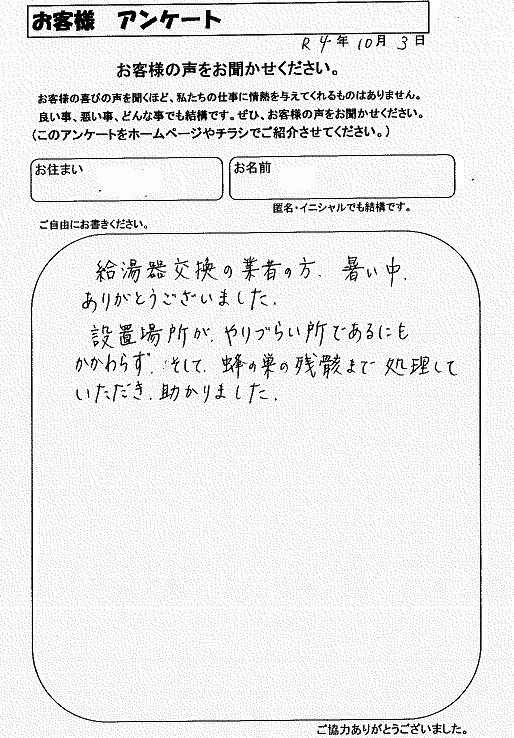 お客様 アンケート
R4年10月3日
お客様の声をお聞かせください。
お客様の喜びの声を聞くほど、私たちの仕事に情熱を与えてくれるものはありません。
良い事、悪い事、どんな事でも結構です。ぜひ、お客様の声をお聞かせください。
(このアンケートをホームページやチラシでご紹介させてください。)
お住まい
お名前
匿名・イニシャルでも結構です。
ご自由にお書きください。
給湯器交換の業者の方、暑い中、
ありがとうございました。
設置場所が、やりづらい所であるにも
かかわらず、そして、蜂の巣の残骸まで処理して
いただき、助かりました。
ご協力ありがとうございました。